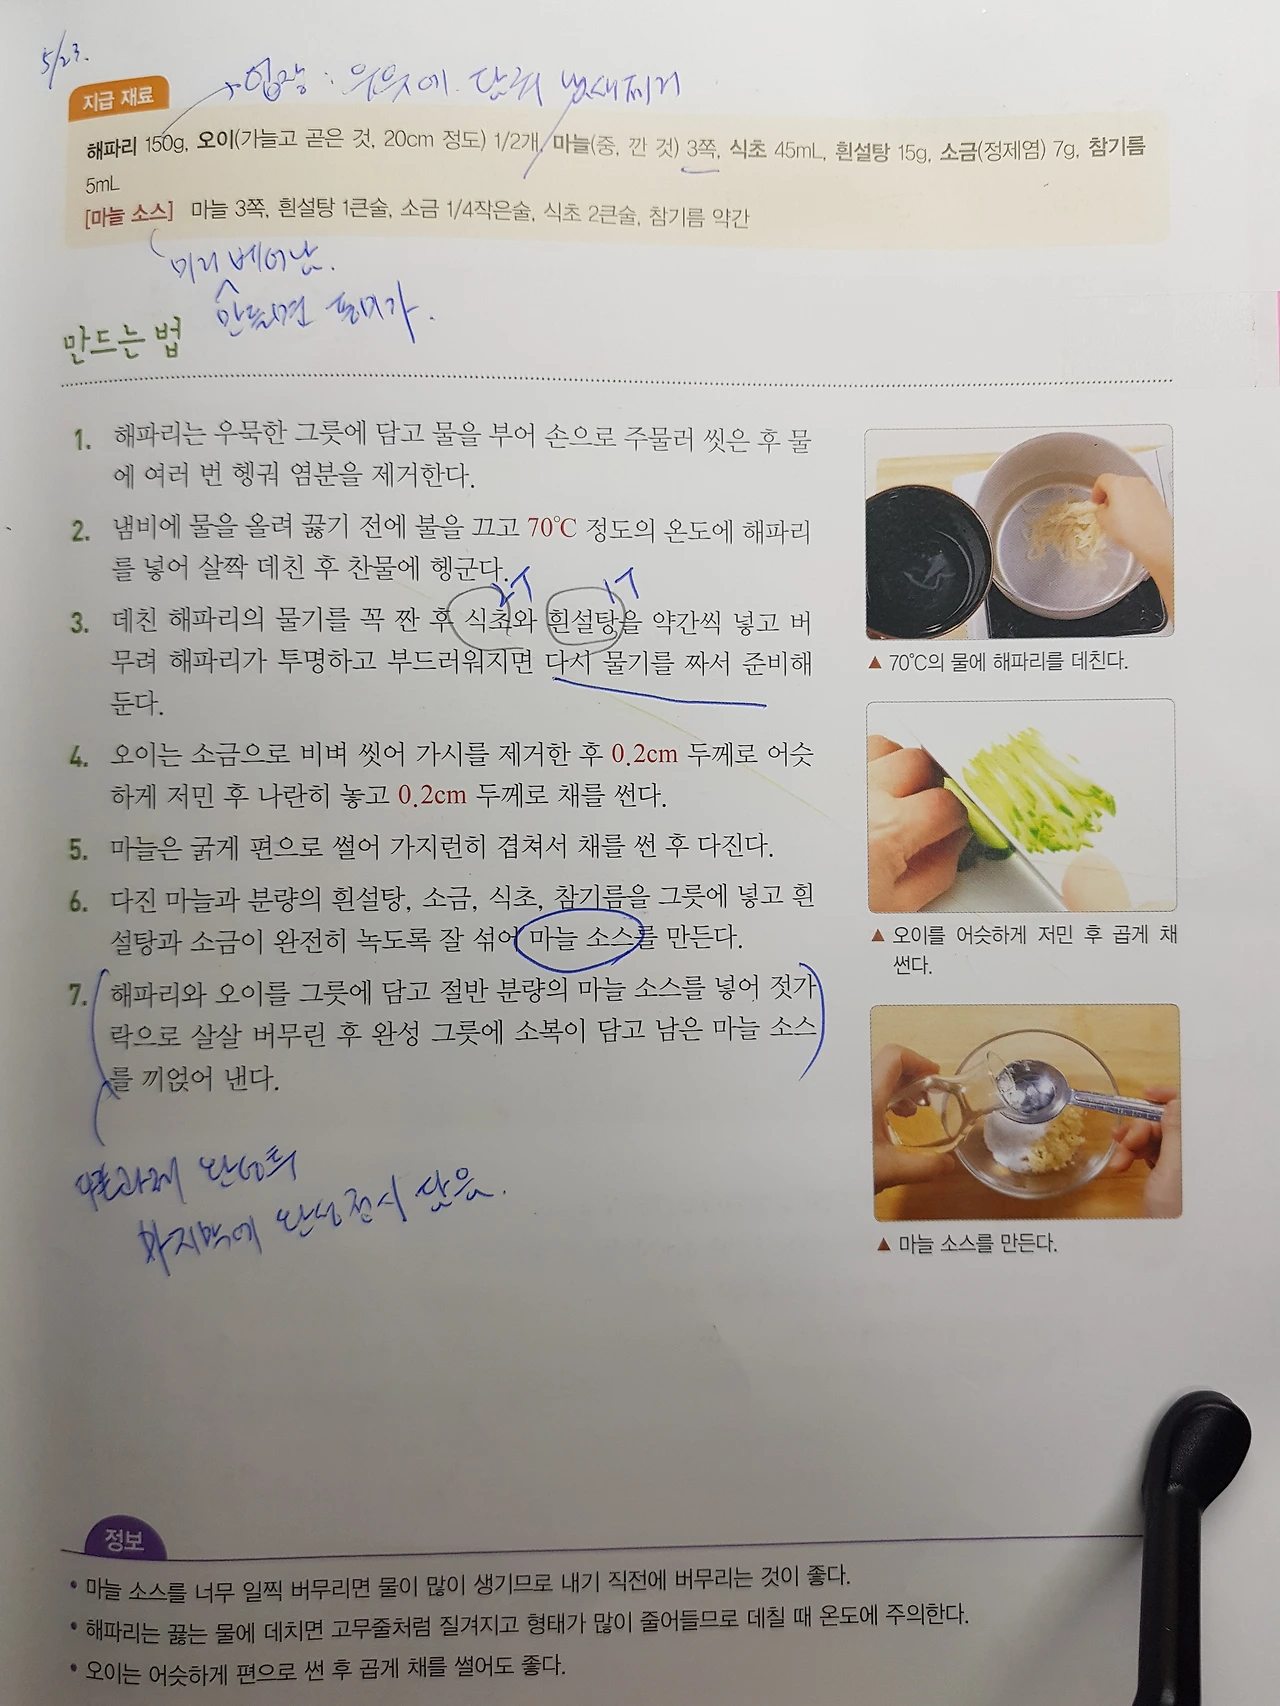 5/23.
지급 재료
해파리 150g, 오이(가늘고 곧은 것, 20cm 정도) 1/2개, 마늘(중, 깐 것) 3쪽, 식초 45mL, 흰설탕 15g, 소금(정제염) 7g, 참기름
5mL
[마늘 소스] 마늘 3쪽, 흰설탕 1큰술, 소금 1/4작은술, 식초 2큰술, 참기름 약간
미리
만들면
만드는 법
1. 해파리는 우묵한 그릇에 담고 물을 부어 손으로 주물러 씻은 후 물
에 여러 번 헹궈 염분을 제거한다.
2. 냄비에 물을 올려 끓기 전에 불을 끄고 70℃ 정도의 온도에 해파리
를 넣어 살짝 데친 후 찬물에 헹군다.
2T 1T
3. 데친 해파리의 물기를 꼭 짠 후 식초와 흰설탕을 약간씩 넣고 버
무려 해파리가 투명하고 부드러워지면 다시 물기를 짜서 준비해
둔다.
4. 오이는 소금으로 비벼 씻어 가시를 제거한 후 0.2cm 두께로 어슷
하게 저민 후 나란히 놓고 0.2cm 두께로 채를 썬다.
5. 마늘은 굵게 편으로 썰어 가지런히 겹쳐서 채를 썬 후 다진다.
6. 다진 마늘과 분량의 흰설탕, 소금, 식초, 참기름을 그릇에 넣고 흰
설탕과 소금이 완전히 녹도록 잘 섞어 마늘 소스를 만든다.
7. 해파리와 오이를 그릇에 담고 절반 분량의 마늘 소스를 넣어 젓가
락으로 살살 버무린 후 완성 그릇에 소복이 담고 남은 마늘 소스
를 끼얹어 낸다.
마지막에 완성접시 담음.
▲ 70℃의 물에 해파리를 데친다.
▲ 오이를 어슷하게 저민 후 곱게 채
썬다.
▲ 마늘 소스를 만든다.
정보
• 마늘 소스를 너무 일찍 버무리면 물이 많이 생기므로 내기 직전에 버무리는 것이 좋다.
• 해파리는 끓는 물에 데치면 고무줄처럼 질겨지고 형태가 많이 줄어들므로 데칠 때 온도에 주의한다.
• 오이는 어슷하게 편으로 썬 후 곱게 채를 썰어도 좋다.